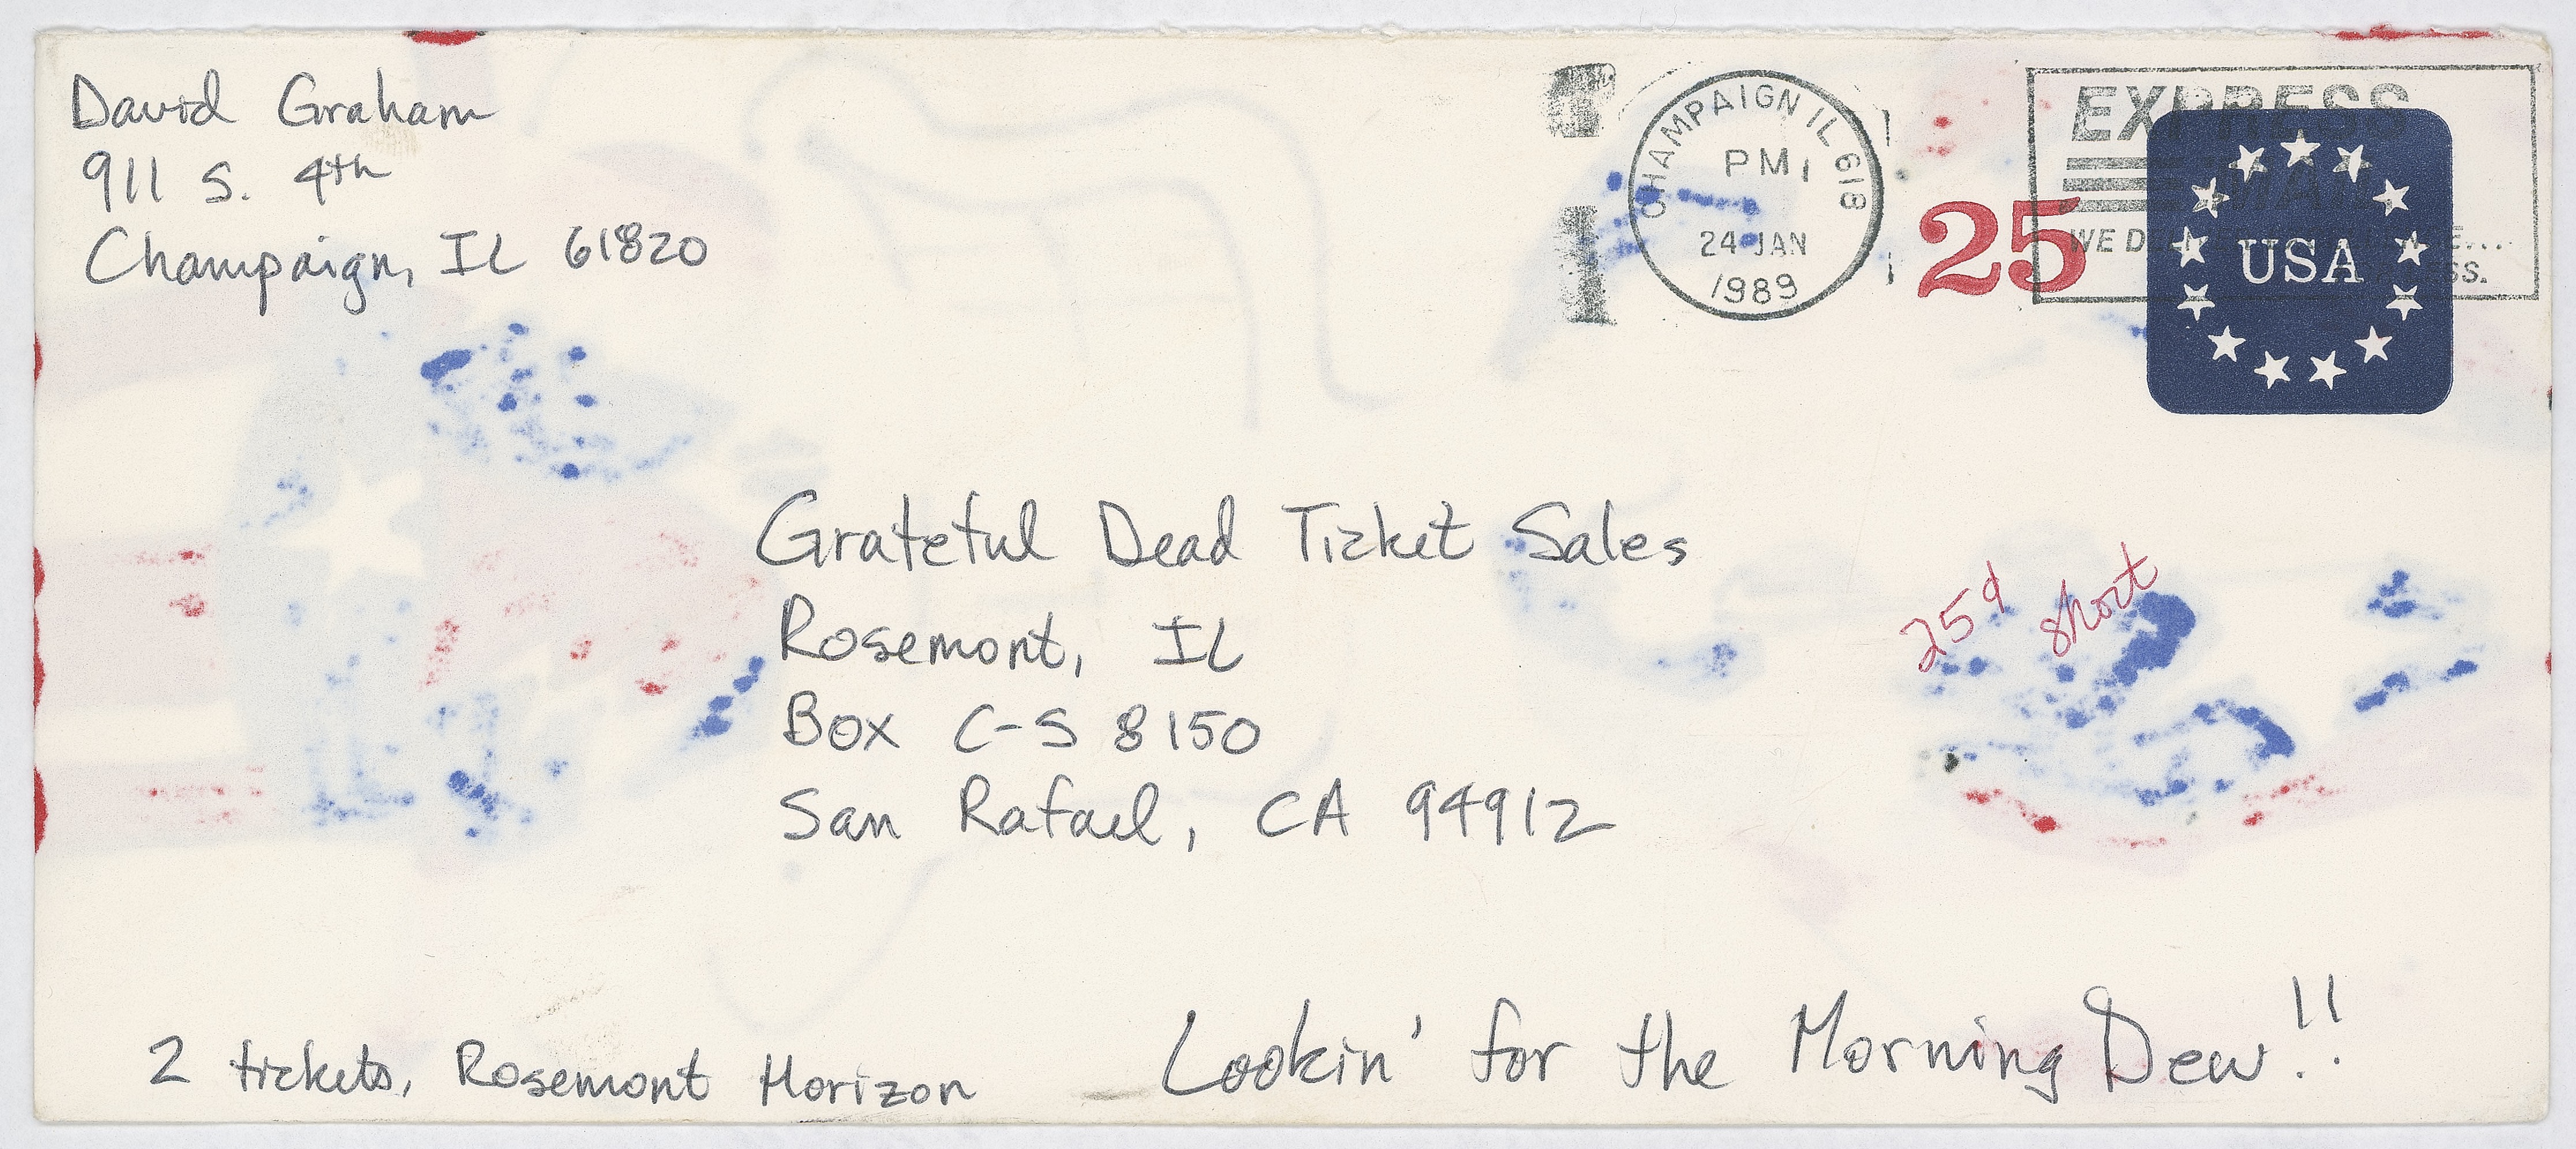 David Graham
911 S. 4th
Champaign, IL 61820
CHAMPAIGN IL 618
PM
24 JAN
1989
25
USA
EXPRESS
MAIL
WE
Grateful Dead Ticket Sales
Rosemont, IL
Box C-S 8150
San Rafael, CA 94912
25¢
short
2 tickets, Rosemont Horizon
Lookin' for the Morning Dew!!